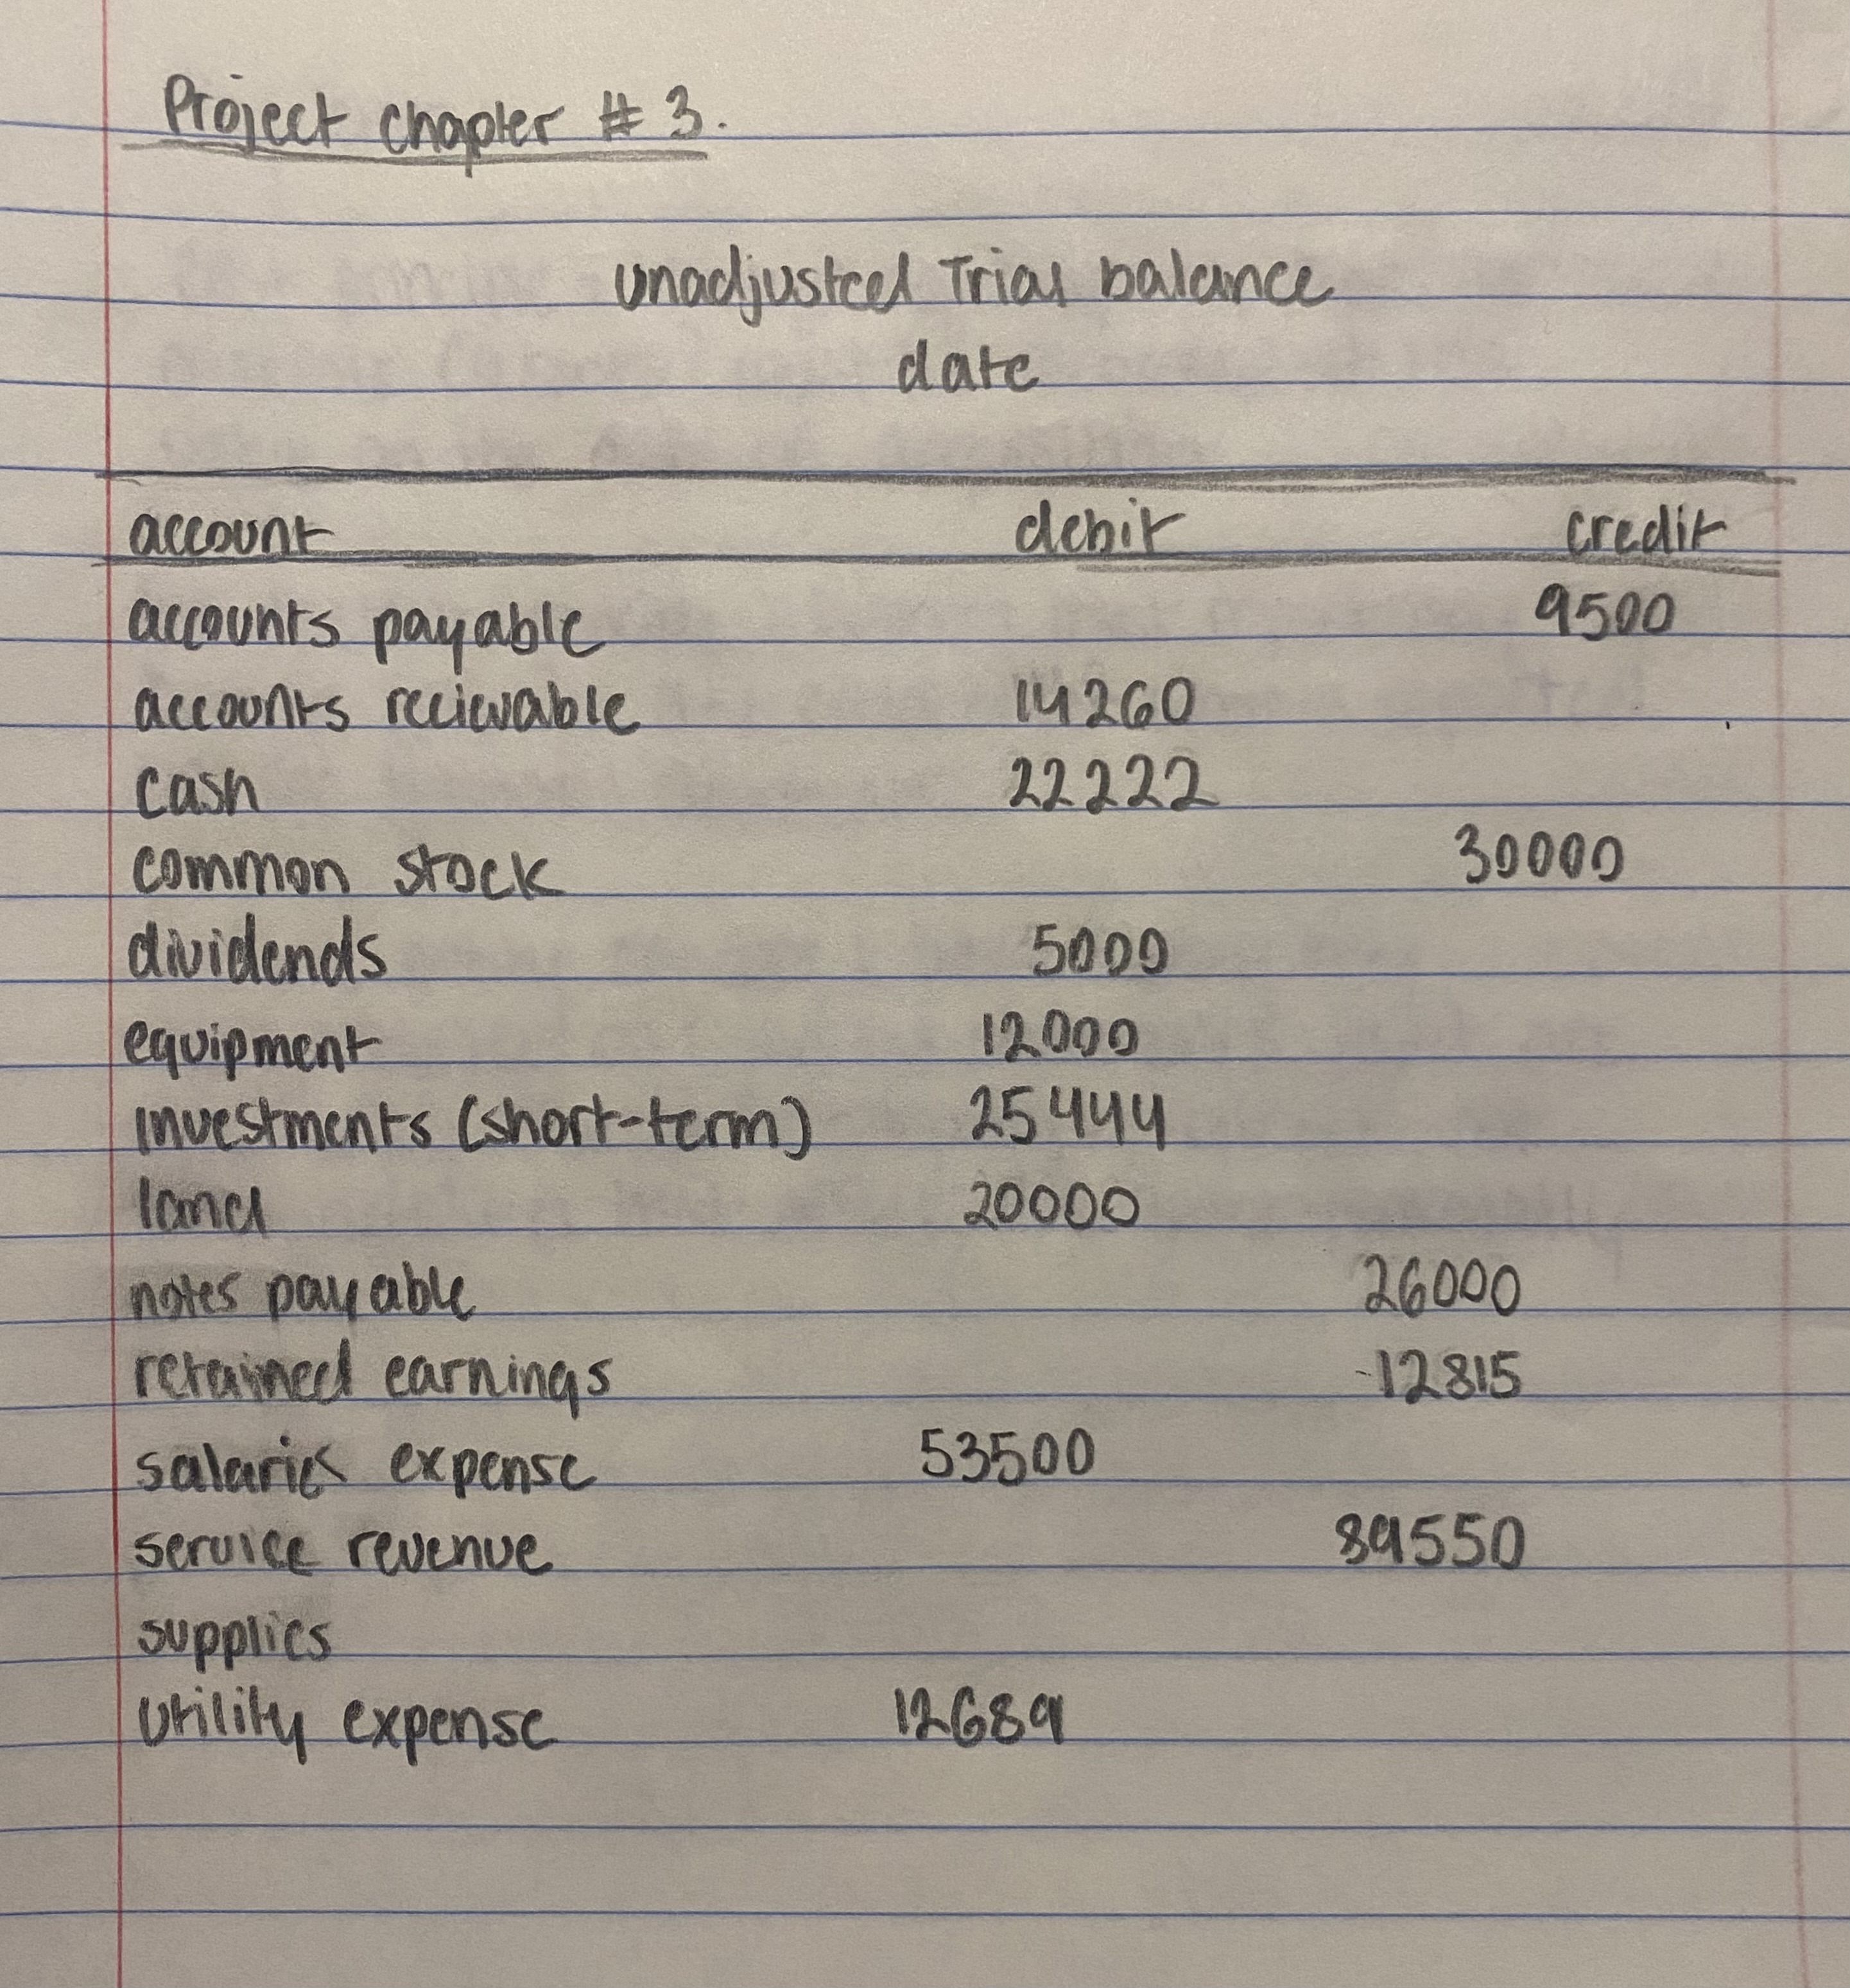 Project Chapter # 3.
unadjusted Trial balance
date
account debit credit
accounts payable 9500
accounts recievable 14260
cash 22222
common stock 30000
dividends 5000
equipment 12000
investments (short-term) 25444
land 20000
notes payable 26000
retained earnings 12815
salaries expense 53500
service revenue 89550
supplies
utility expense 12689